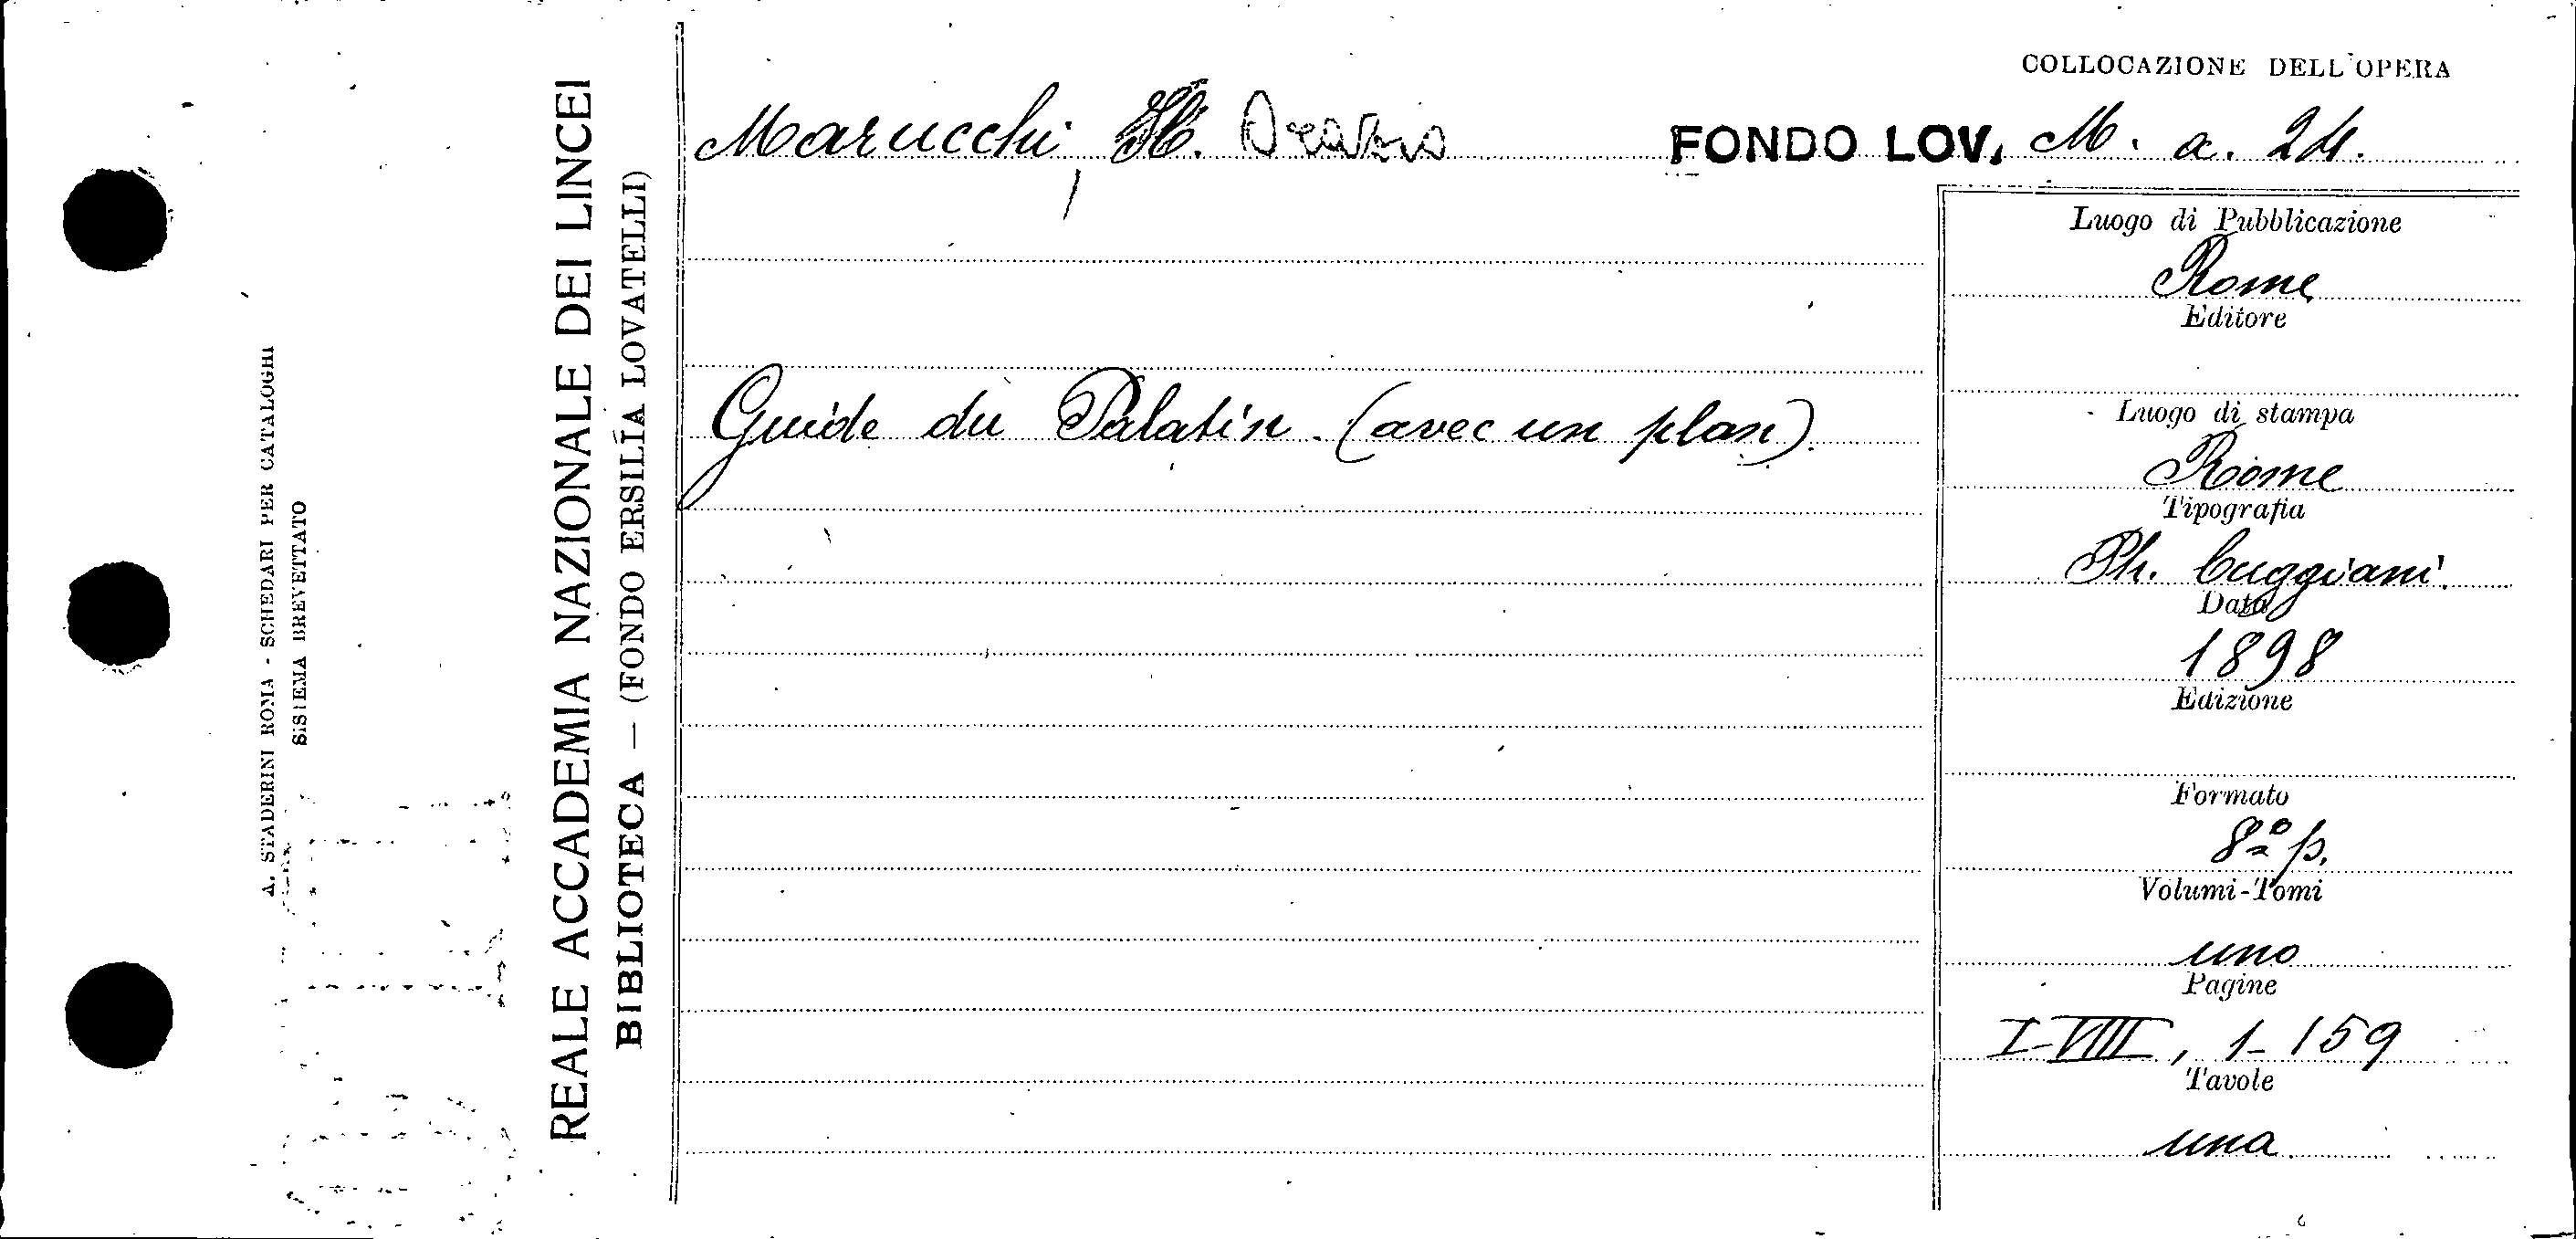 COLLOCAZIONE DELL'OPERA
Marucchi H. Orazio FONDO LOV. M. a. 24.
Guide du Palatin. (avec un plan).
Luogo di Pubblicazione
Rome
Editore
Luogo di stampa
Rome
Tipografia
Ph. Cuggiani.
Data
1898
Edizione
Formato
8º p.
Volumi-Tomi
uno
Pagine
I-VIII, 1-159
Tavole
una
REALE ACCADEMIA NAZIONALE DEI LINCEI
BIBLIOTECA — (FONDO ERSILIA LOVATELLI)
A. STADERINI ROMA - SCHEDARI PER CATALOGHI
SISTEMA BREVETTATO